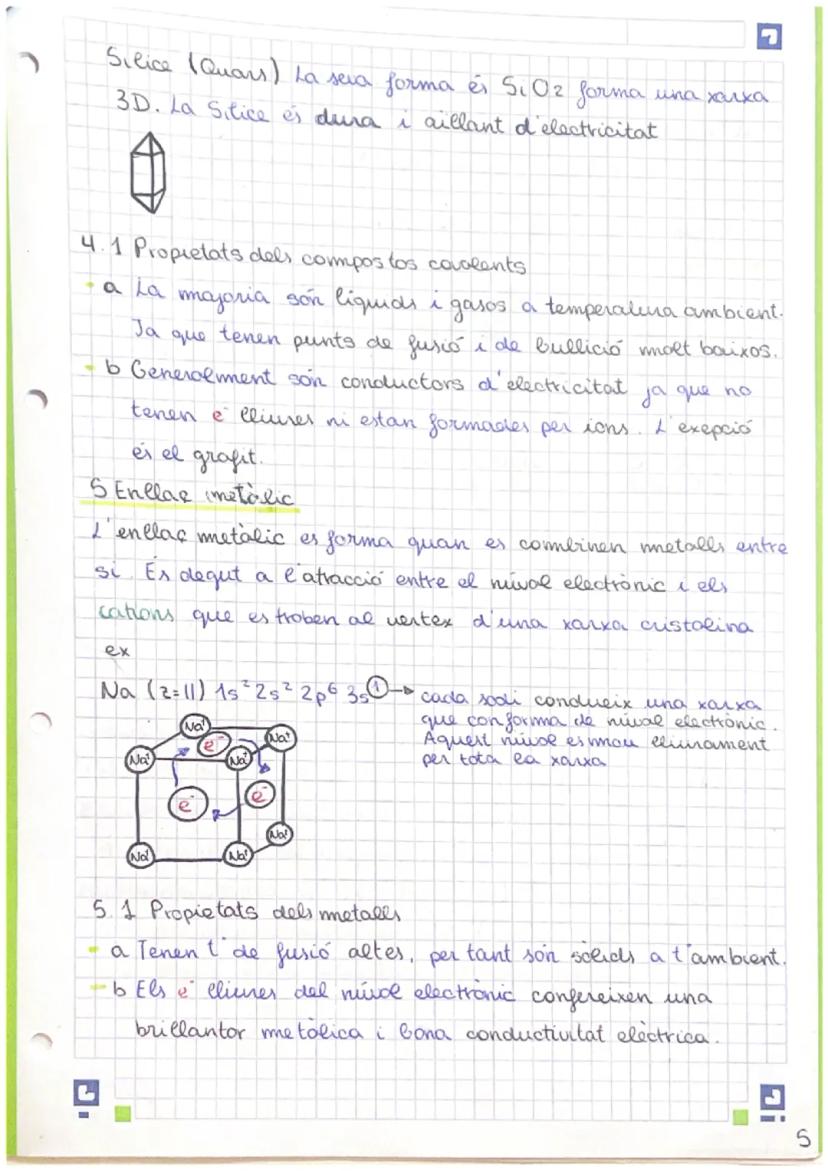 Silice (Quars) La seva forma és SiO2 forma una xarxa
3D. La Silice és dura i aillant d'electricitat
4.1 Propietats dels compostos covalents
a La majoria són líquids i gasos a temperatura ambient.
Ja que tenen punts de fusió i de bullició molt baixos.
b Generalment són conductors d'electricitat ja que no
tenen e⁻ lliures ni estan formades per ions. L'exepció
és el grafit.
5 Enllaç metàlic
L'enllaç metàlic es forma quan es combinen metalls entre
si. És degut a l'atracció entre el núvol electrònic i els
cations que es troben al vertex d'una xarxa cristalina
ex
Na (z=11) 1s² 2s² 2p⁶ 3s¹ → cada sodi condueix una xarxa
que conforma de núvol electrònic.
Aquest núvol es mou lliurament
per tota la xarxa
Na⁺
e⁻
Na⁺
Na⁺
Na⁺
e⁻
e⁻
Na⁺
Na⁺
Na⁺
5.1 Propietats dels metalls
a Tenen t° de fusió altes, per tant són sòlids a t°ambient.
b Els e⁻ lliures del núvol electrònic confereixen una
brillantor metàlica i bona conductivitat elèctrica.
5